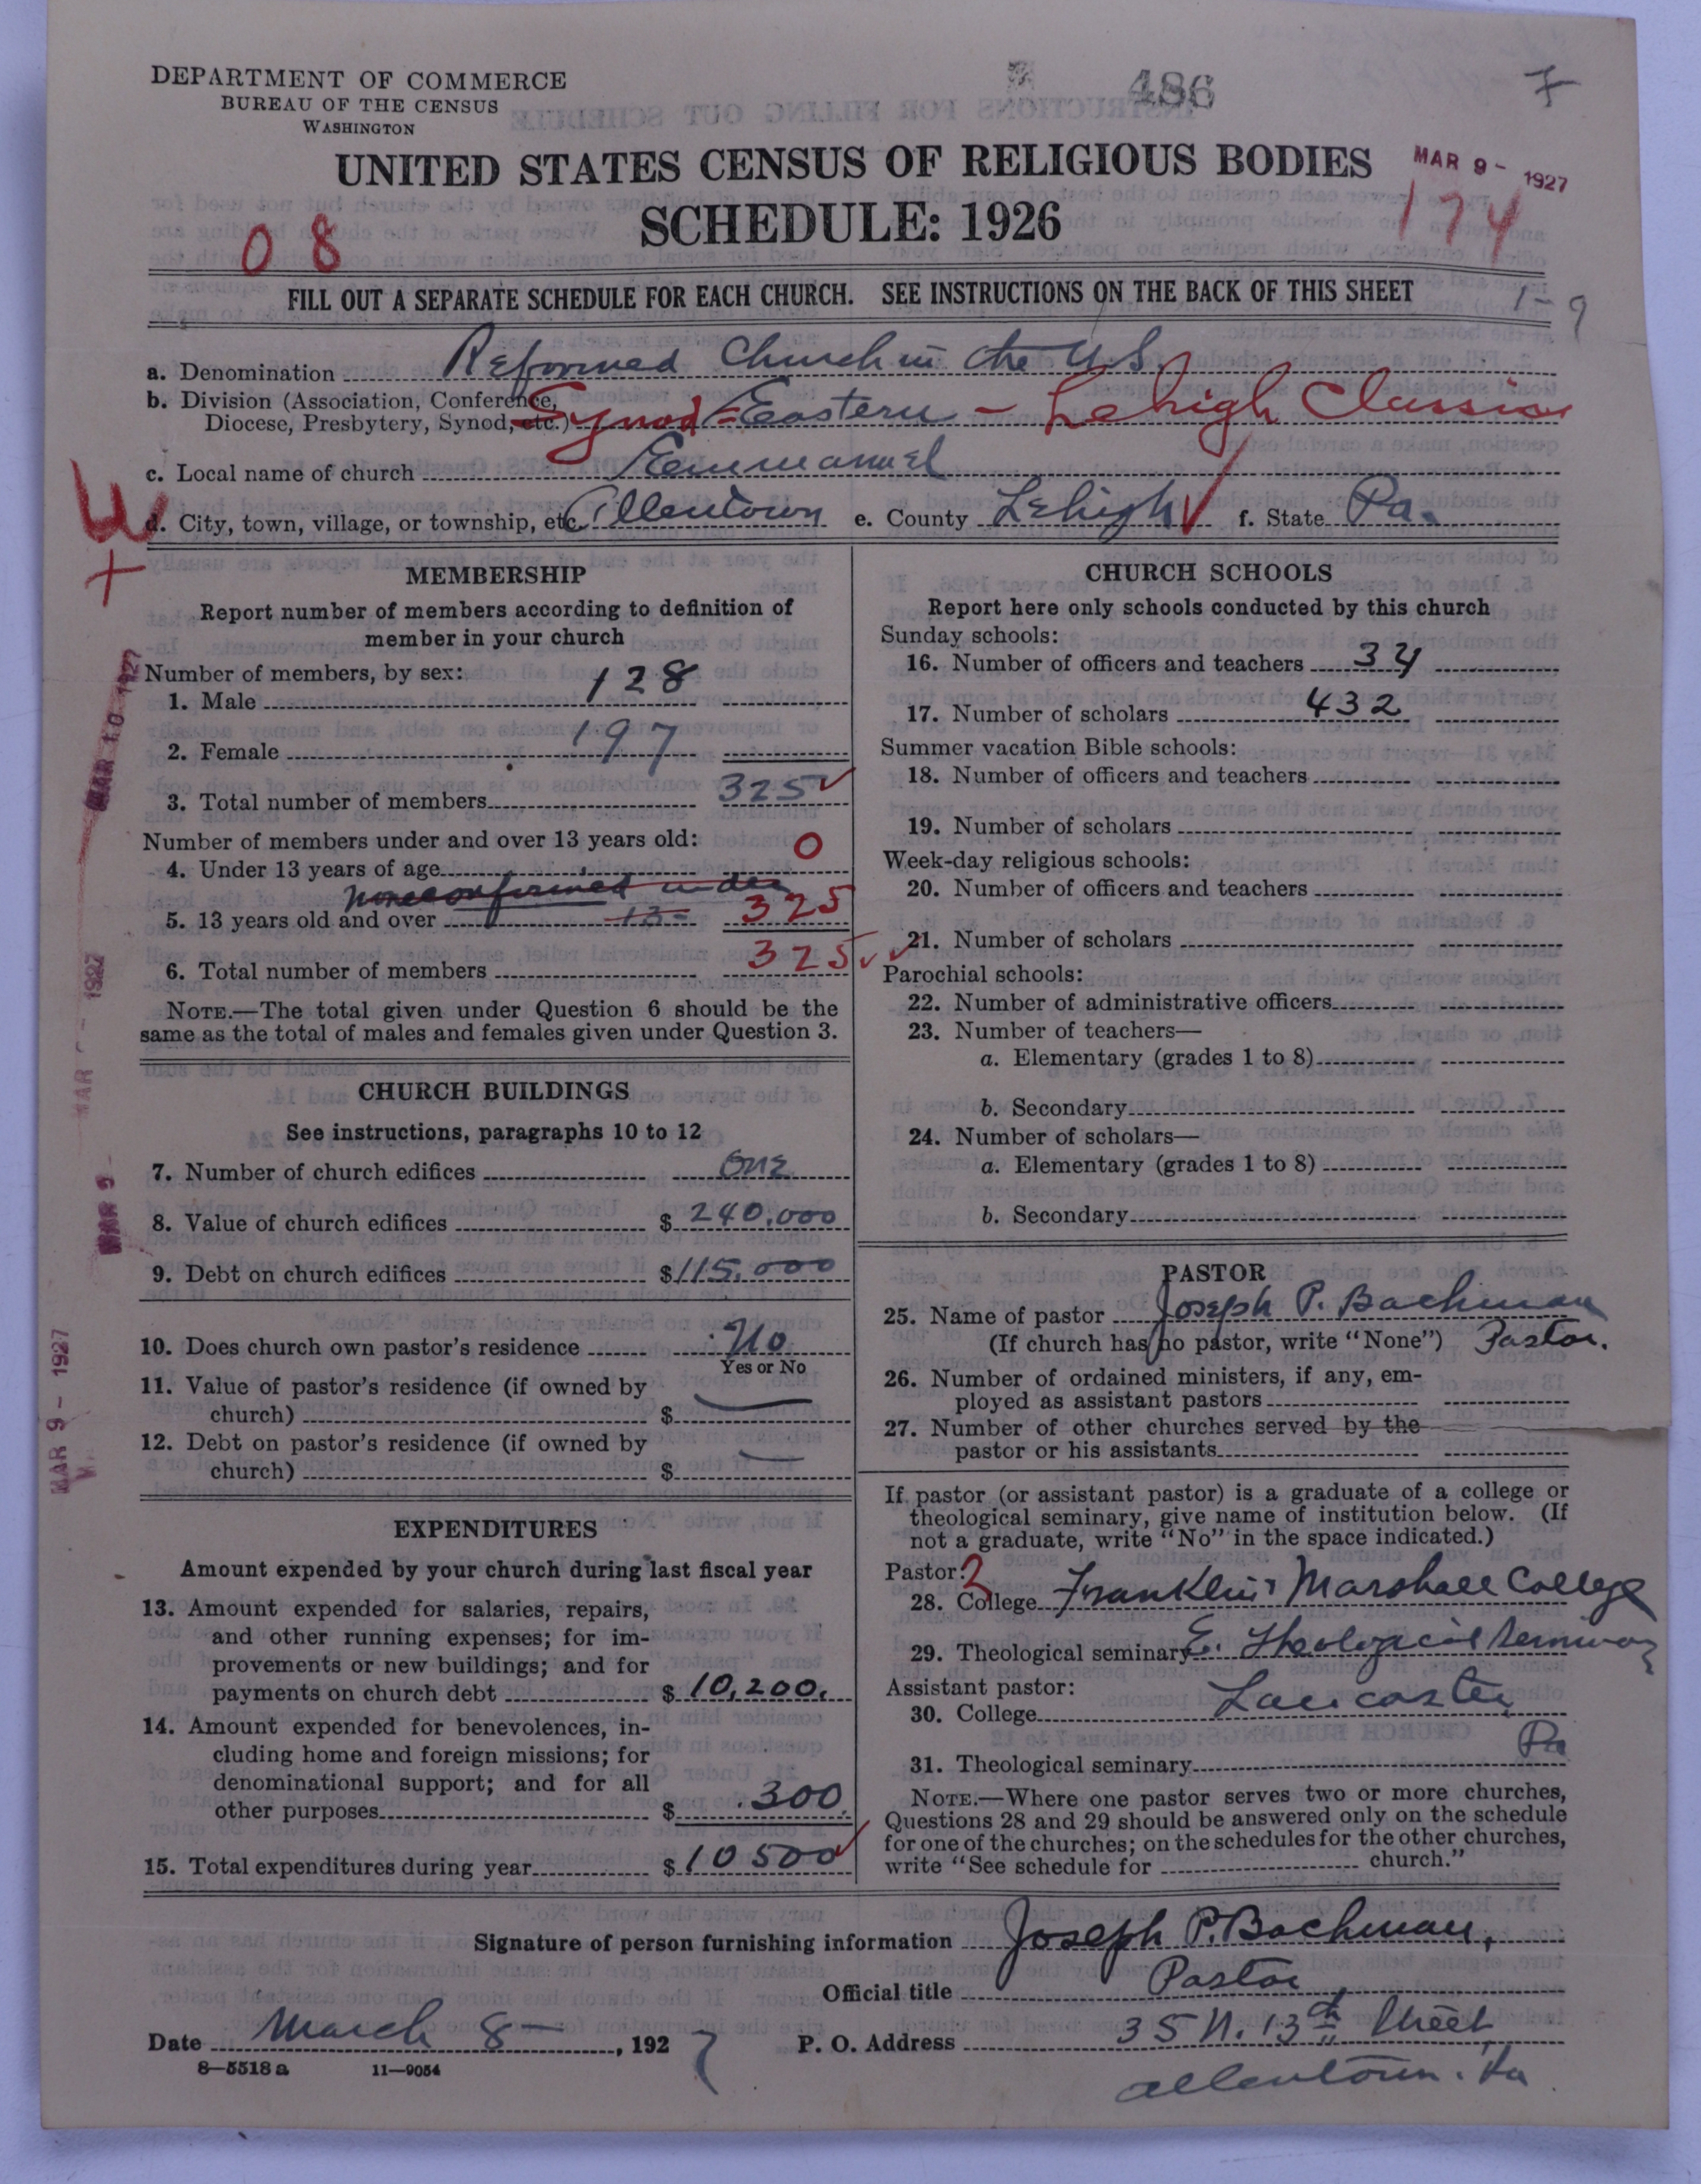 DEPARTMENT OF COMMERCE
BUREAU OF THE CENSUS
WASHINGTON
486
7
UNITED STATES CENSUS OF RELIGIOUS BODIES
MAR 9 - 1927
SCHEDULE: 1926
174
08
FILL OUT A SEPARATE SCHEDULE FOR EACH CHURCH. SEE INSTRUCTIONS ON THE BACK OF THIS SHEET
1-9
a. Denomination Reformed Church in the U.S.
b. Division (Association, Conference,
Diocese, Presbytery, Synod, etc.) Synod = Eastern - Lehigh Classis
c. Local name of church Emmanuel
d. City, town, village, or township, etc. Allentown e. County Lehigh f. State Pa.
MEMBERSHIP
Report number of members according to definition of
member in your church
Number of members, by sex:
1. Male 128
2. Female 197
3. Total number of members 325
Number of members under and over 13 years old:
4. Under 13 years of age 0
none confirmed under
5. 13 years old and over 13- 325
6. Total number of members 325
NOTE.—The total given under Question 6 should be the
same as the total of males and females given under Question 3.
CHURCH BUILDINGS
See instructions, paragraphs 10 to 12
7. Number of church edifices One
8. Value of church edifices $ 240,000
9. Debt on church edifices $ 115,000
10. Does church own pastor's residence No
Yes or No
11. Value of pastor's residence (if owned by
church) $ —
12. Debt on pastor's residence (if owned by
church) $ —
EXPENDITURES
Amount expended by your church during last fiscal year
13. Amount expended for salaries, repairs,
and other running expenses; for im-
provements or new buildings; and for
payments on church debt $ 10,200.
14. Amount expended for benevolences, in-
cluding home and foreign missions; for
denominational support; and for all
other purposes $ 300.
15. Total expenditures during year $ 10500
CHURCH SCHOOLS
Report here only schools conducted by this church
Sunday schools:
16. Number of officers and teachers 34
17. Number of scholars 432
Summer vacation Bible schools:
18. Number of officers and teachers
19. Number of scholars
Week-day religious schools:
20. Number of officers and teachers
21. Number of scholars
Parochial schools:
22. Number of administrative officers
23. Number of teachers—
a. Elementary (grades 1 to 8)
b. Secondary
24. Number of scholars—
a. Elementary (grades 1 to 8)
b. Secondary
PASTOR
25. Name of pastor Joseph P. Bachman
(If church has no pastor, write "None") Pastor.
26. Number of ordained ministers, if any, em-
ployed as assistant pastors
27. Number of other churches served by the
pastor or his assistants
If pastor (or assistant pastor) is a graduate of a college or
theological seminary, give name of institution below. (If
not a graduate, write "No" in the space indicated.)
Pastor: 2
28. College Franklin & Marshall College
29. Theological seminary E. Theological Seminary
Assistant pastor: Lancaster
30. College
Pa
31. Theological seminary
NOTE.—Where one pastor serves two or more churches,
Questions 28 and 29 should be answered only on the schedule
for one of the churches; on the schedules for the other churches,
write "See schedule for church."
Signature of person furnishing information Joseph P. Bachman,
Official title Pastor
Date March 8-, 1927 P. O. Address 35 N. 13th Street
Allentown. Pa
8-5518 a 11-9054
MAR 10 1927
MAR 9 - 1927